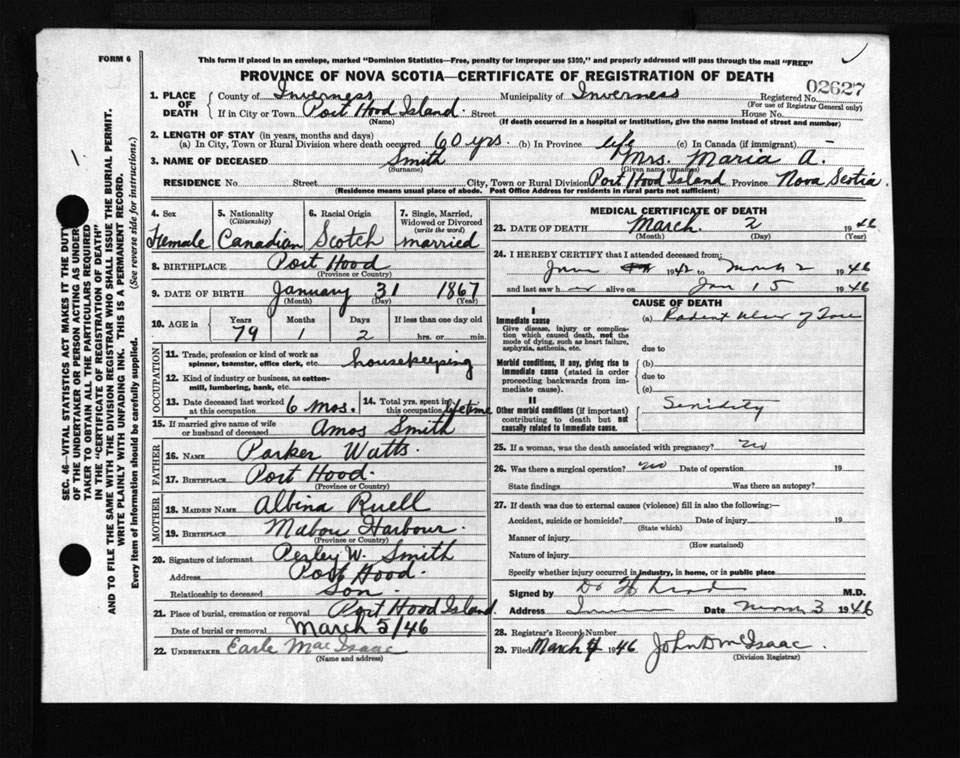 FORM 6
This form if placed in an envelope, marked "Dominion Statistics—Free, penalty for improper use $300," and properly addressed will pass through the mail "FREE"
PROVINCE OF NOVA SCOTIA—CERTIFICATE OF REGISTRATION OF DEATH
02627
1. PLACE OF DEATH County of Inverness Municipality of Inverness Registered No.
(For use of Registrar General only)
If in City or Town Port Hood Island. Street House No.
(Name) (If death occurred in a hospital or institution, give the name instead of street and number)
2. LENGTH OF STAY (in years, months and days)
(a) In City, Town or Rural Division where death occurred 60 yrs. (b) In Province life (c) In Canada (if immigrant) —
3. NAME OF DECEASED Smith Mrs. Maria A.
(Surname) (Given name or names)
RESIDENCE No. Street City, Town or Rural Division Port Hood Island Province Nova Scotia.
(Residence means usual place of abode. Post Office Address for residents in rural parts not sufficient)
4. Sex Female
5. Nationality (Citizenship) Canadian
6. Racial Origin Scotch
7. Single, Married, Widowed or Divorced (write the word) married
8. BIRTHPLACE Port Hood
(Province or Country)
9. DATE OF BIRTH January 31 1867
(Month) (Day) (Year)
10. AGE in Years Months Days If less than one day old
79 1 2 hrs. or min.
OCCUPATION
11. Trade, profession or kind of work as spinner, teamster, office clerk, etc. housekeeping
12. Kind of industry or business, as cotton-mill, lumbering, bank, etc.
13. Date deceased last worked at this occupation 6 mos. 14. Total yrs. spent in this occupation lifetime
15. If married give name of wife or husband of deceased Amos Smith
FATHER
16. NAME Parker Watts
17. BIRTHPLACE Port Hood.
(Province or Country)
MOTHER
18. MAIDEN NAME Albina Ruell
19. BIRTHPLACE Mabou Harbour.
(Province or Country)
20. Signature of informant Pesley W. Smith
Address Port Hood.
Relationship to deceased Son.
21. Place of burial, cremation or removal Port Hood Island.
Date of burial or removal March 5/46
22. UNDERTAKER Earle MacIsaac
(Name and address)
MEDICAL CERTIFICATE OF DEATH
23. DATE OF DEATH March 2 1946
(Month) (Day) (Year)
24. I HEREBY CERTIFY that I attended deceased from:
to March 2 1946
and last saw her alive on Jan 15 1946
CAUSE OF DEATH
I
Immediate cause (a) Rodent Ulcer of
Give disease, injury or complication which caused death, not the mode of dying, such as heart failure, asphyxia, asthenia, etc.
due to
Morbid conditions, if any, giving rise to immediate cause (stated in order proceeding backwards from immediate cause). (b)
due to
(c)
II
Other morbid conditions (if important) contributing to death but not causally related to immediate cause. Senility
25. If a woman, was the death associated with pregnancy? no
26. Was there a surgical operation? no Date of operation 19
State findings Was there an autopsy?
27. If death was due to external causes (violence) fill in also the following:—
Accident, suicide or homicide? Date of injury 19
(State which)
Manner of injury
(How sustained)
Nature of injury
Specify whether injury occurred in industry, in home, or in public place
Signed by Dr M.D.
Address Date March 3 1946
28. Registrar's Record Number
29. Filed March 1946 John D McIsaac.
(Division Registrar)
SEC. 46—VITAL STATISTICS ACT MAKES IT THE DUTY
OF THE UNDERTAKER OR PERSON ACTING AS UNDER-
TAKER TO OBTAIN ALL THE PARTICULARS REQUIRED
IN THE "CERTIFICATE OF REGISTRATION OF DEATH"
AND TO FILE THE SAME WITH THE DIVISION REGISTRAR WHO SHALL ISSUE THE BURIAL PERMIT.
WRITE PLAINLY WITH UNFADING INK. THIS IS A PERMANENT RECORD.
Every item of information should be carefully supplied. (See reverse side for instructions.)